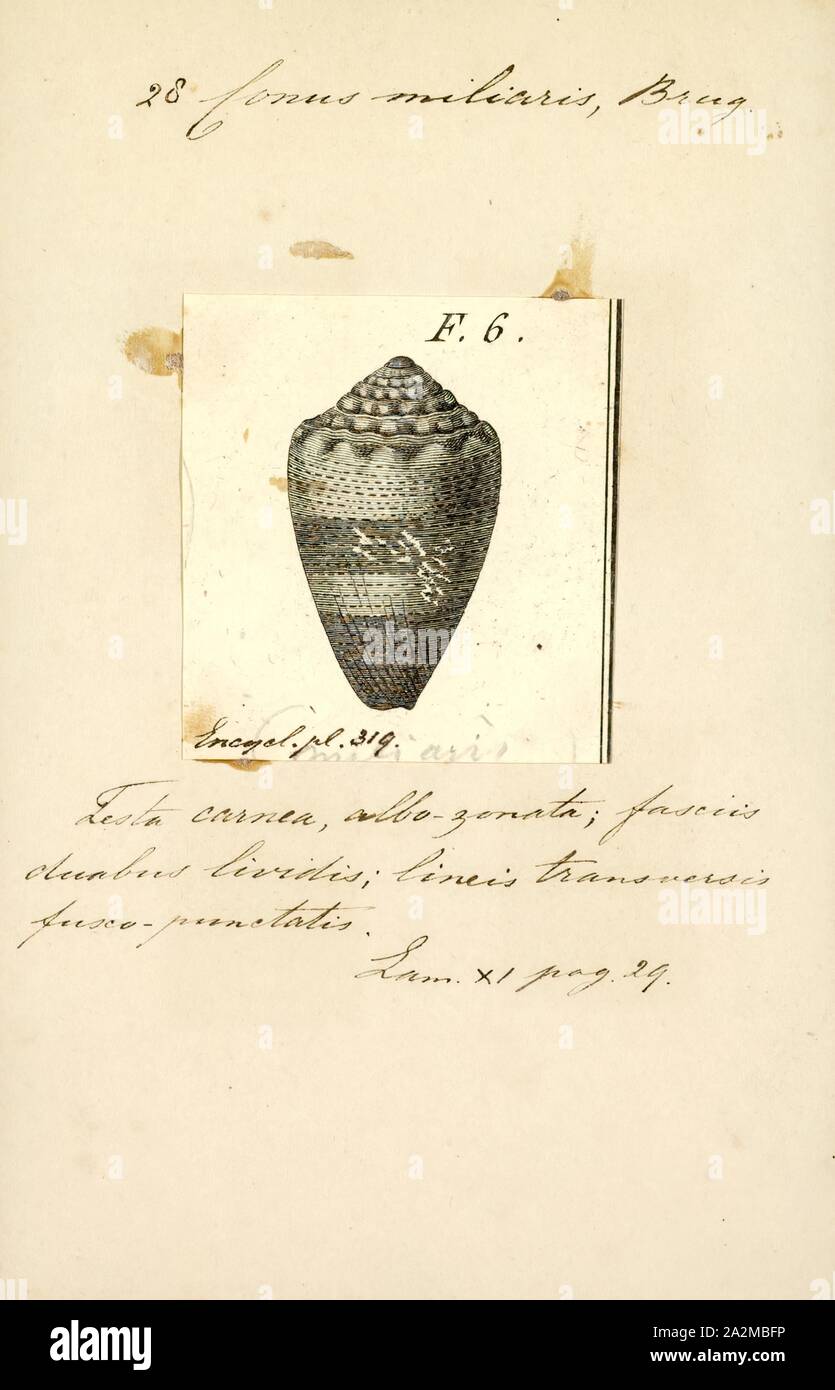 28 Conus miliaris, Brug.
F. 6.
Encycl. pl. 319.
miliaris
Testa carnea, albo-zonata; fasciis
duabus lividis; lineis transversis
fusco-punctatis.
Lam. XI pag. 29.
alamy
Image ID: A2MBFP
www.alamy.com